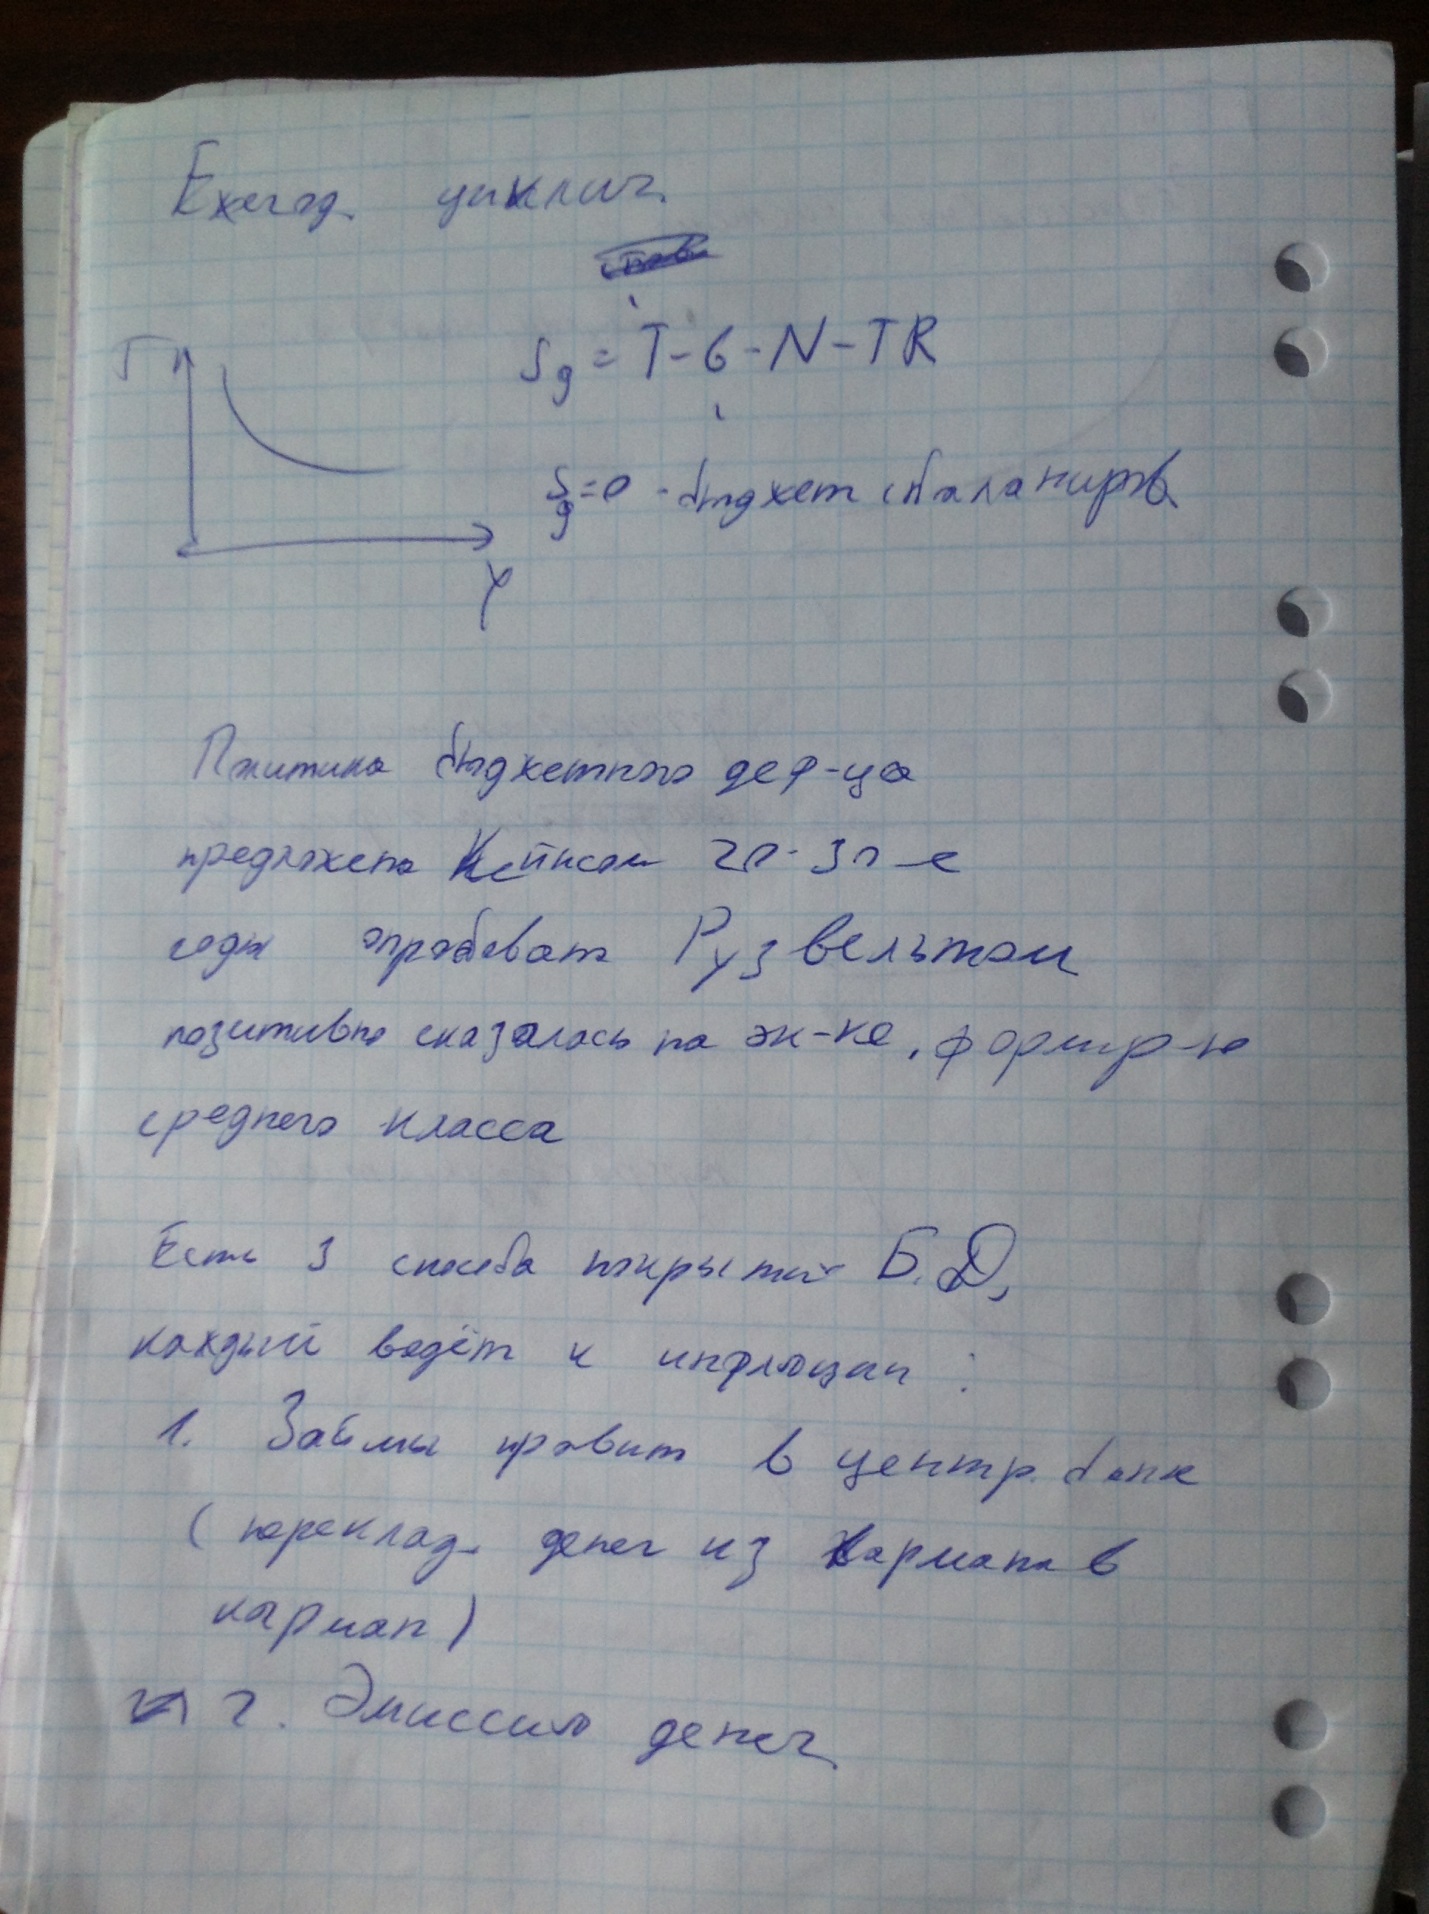 Ежегод. циклич.
Sg = T - G - N - TR
T
Sg = 0 - бюджет сбаланиров
Y
Политика бюджетного деф-ца
предложена Кейнсом 20-30-е
годы опробована Рузвельтом
позитивно сказалась на эк-ке, формир-ю
среднего класса
Есть 3 способа покрытия Б.Д,
каждый ведёт к инфляции :
1. Займы правит в центр. банк
(переклад. денег из кармана в
карман)
2. Эмиссия денег